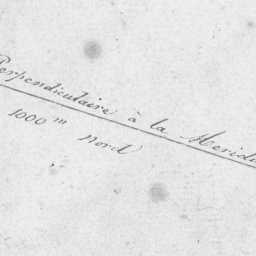 Perpendiculaire à la Meridi
1000 m Nord